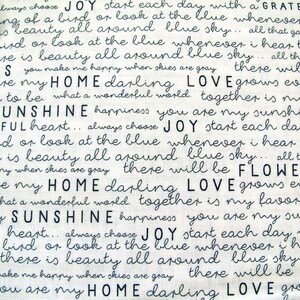 always choose JOY start each day with a GRATEF
ng of a bird or look at the blue whenever i
is beauty all around blue sky... all that g
ird or look at the blue whenever i hear
re is beauty all around blue sky... all
S you make me happy when skies are gray there will
re my HOME darling LOVE grows e
s to be what a wonderful world together is m
SUNSHINE happiness you are my sunsh
FUL heart... always choose JOY start each day
a bird or look at the blue whenever i hear
is beauty all around blue sky... all that
py when skies are gray there will be FLOWE
e my HOME darling LOVE grows e
what a wonderful world together is my favor
y SUNSHINE happiness you are my su
heart... always choose JOY start each day
bird or look at the blue whenever i h
there is beauty all around blue sky...
make me happy when skies are gray there will be
ou are my HOME darling LOVE gro